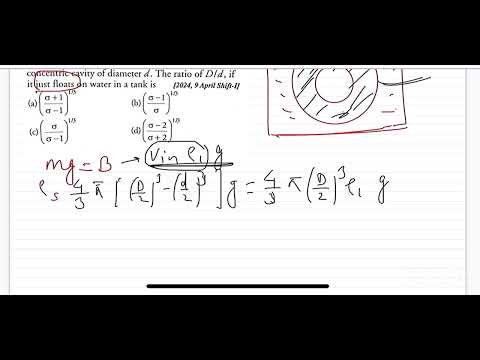 concentric cavity of diameter d. The ratio of D/d, if
it just floats on water in a tank is [2024, 9 April Shift-I]
(a) (σ+1/σ−1)^1/3 (b) (σ−1/σ)^1/3
(c) (σ/σ−1)^1/3 (d) (σ−2/σ+2)^1/3
mg = B → Vin ρ₁ g
ρs 4/3 π [(D/2)³ − (d/2)³] g = 4/3 π (D/2)³ ρ₁ g